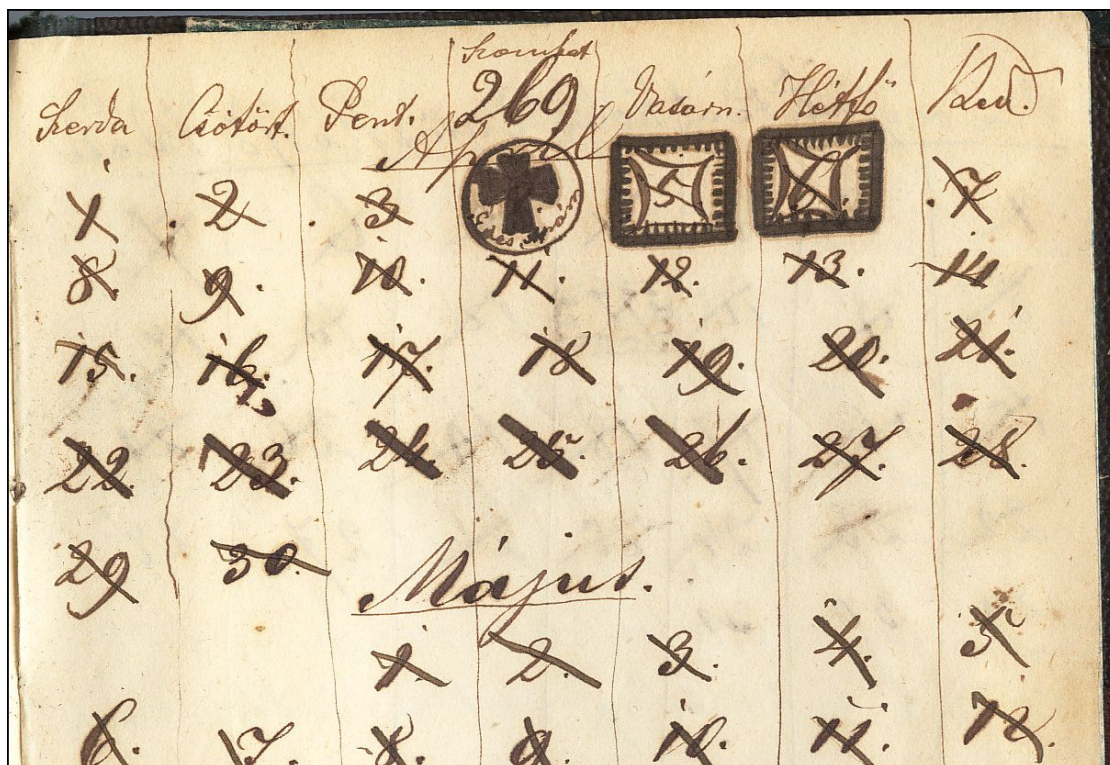 Szombat
Szerda Csötört. Pent. 269 Vasárn. Hétfő Ked.
April
1 2 3 5 6 7
8. 9. 10. 11. 12. 13. 14
15. 16. 17. 18 19. 20. 21.
22. 23. 24 25. 26. 27. 28.
29 30.
Május.
1 2. 3. 4. 5
6. 7. 8. 9. 10. 11. 12.